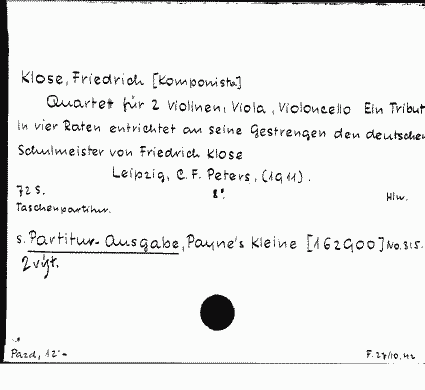 Klose, Friedrich [Komponist]
Quartet für 2 Violinen, Viola, Violoncello Ein Tribut
in vier Raten entrichtet an seine Gestrengen den deutschen
Schulmeister von Friedrich Klose
Leipzig, C. F. Peters, (1911).
72 S. 8°. Hlw.
Taschenpartitur.
s. Partitur-Ausgabe, Payne's Kleine [162900] No. 315.
2 vgt.
Pazd, 12°-
F. 27/10.42